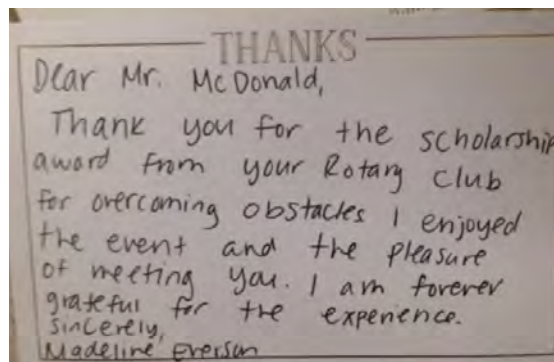 THANKS
Dear Mr. McDonald,
Thank you for the scholarship
award from your Rotary Club
for overcoming obstacles I enjoyed
the event and the pleasure
of meeting you. I am forever
grateful for the experience.
Sincerely,
Madeline Everson